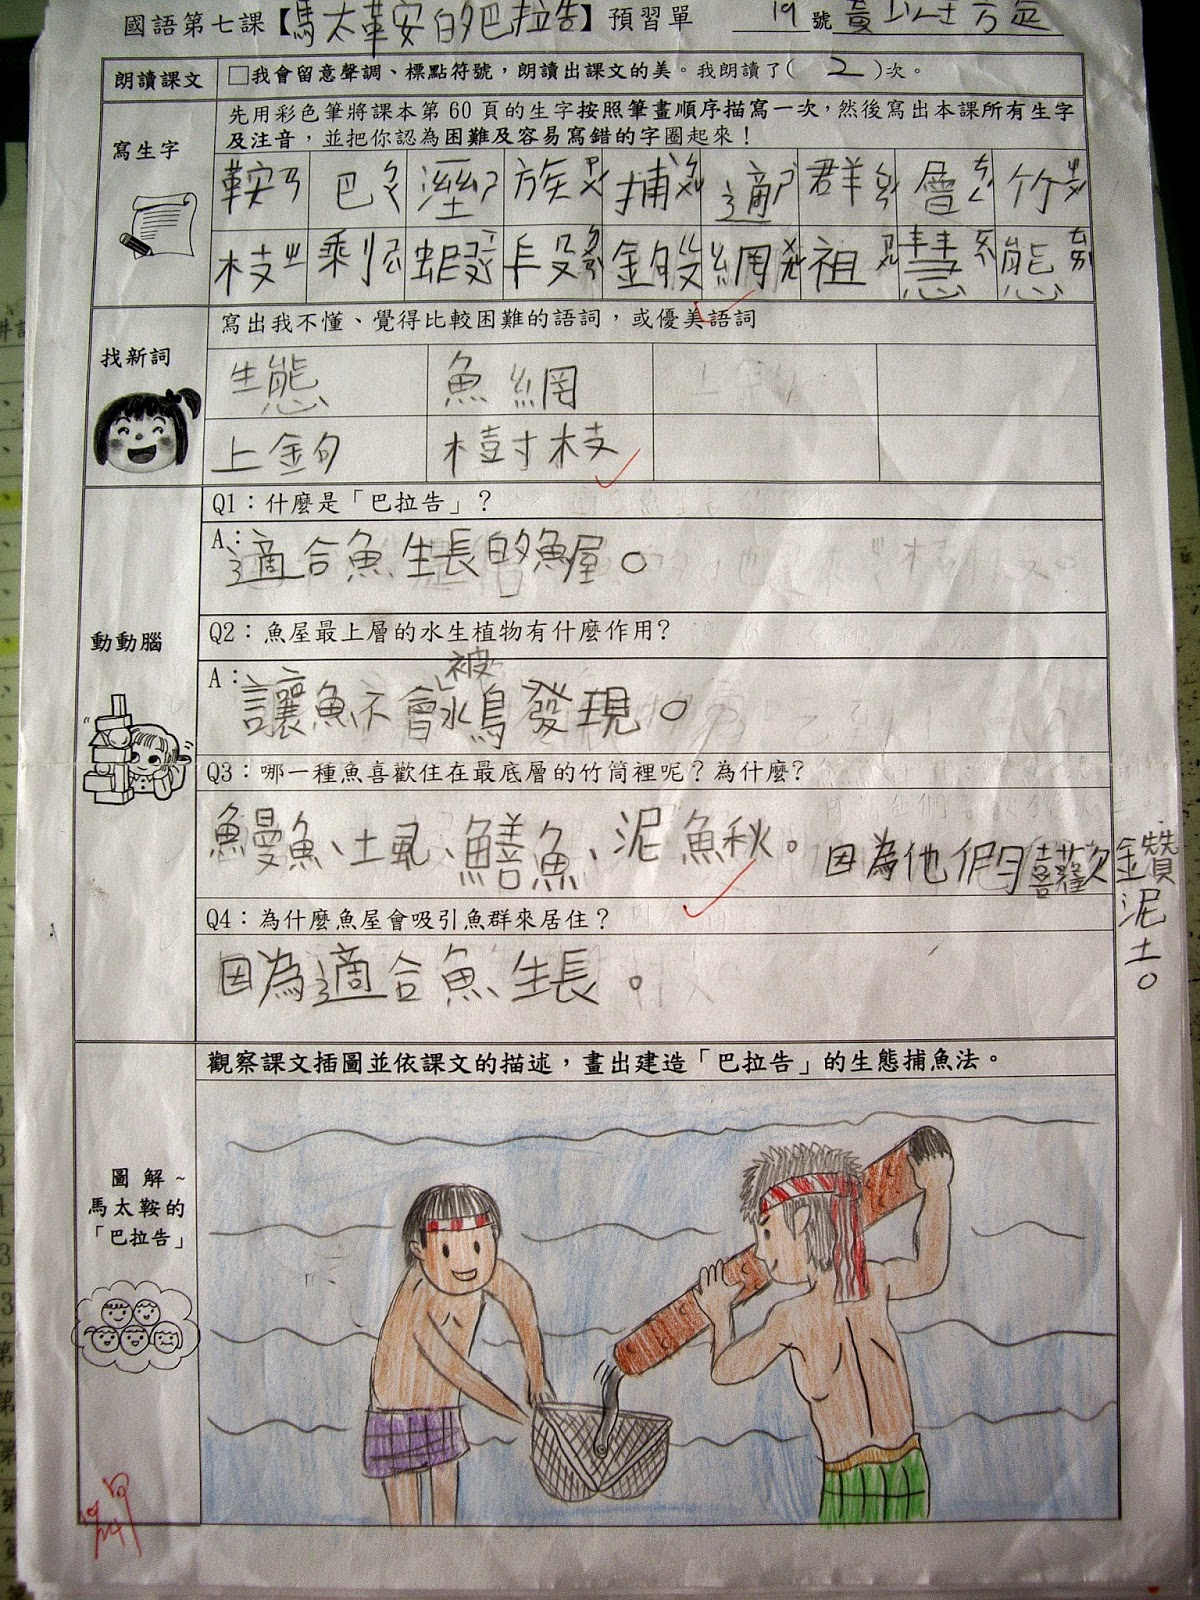 國語第七課【馬太鞍的巴拉告】預習單 19號
朗讀課文
□我會留意聲調、標點符號，朗讀出課文的美。我朗讀了( 2 )次。
寫生字
先用彩色筆將課本第60頁的生字按照筆畫順序描寫一次，然後寫出本課所有生字
及注音，並把你認為困難及容易寫錯的字圈起來！
鞍 巴 溼 族 捕 適 群 層 竹
枝 剩 蝦 段 鉤 網 祖 慧 態
找新詞
寫出我不懂、覺得比較困難的語詞，或優美語詞
生態 魚網
上鉤 樹枝
動動腦
Q1：什麼是「巴拉告」？
A：適合魚生長的魚屋。
Q2：魚屋最上層的水生植物有什麼作用？
A：讓魚不會被水鳥發現。
Q3：哪一種魚喜歡住在最底層的竹筒裡呢？為什麼？
鰻魚、土虱、鱔魚、泥鰍。因為他們喜歡鑽泥土。
Q4：為什麼魚屋會吸引魚群來居住？
因為適合魚生長。
圖解~
馬太鞍的
「巴拉告」
觀察課文插圖並依課文的描述，畫出建造「巴拉告」的生態捕魚法。